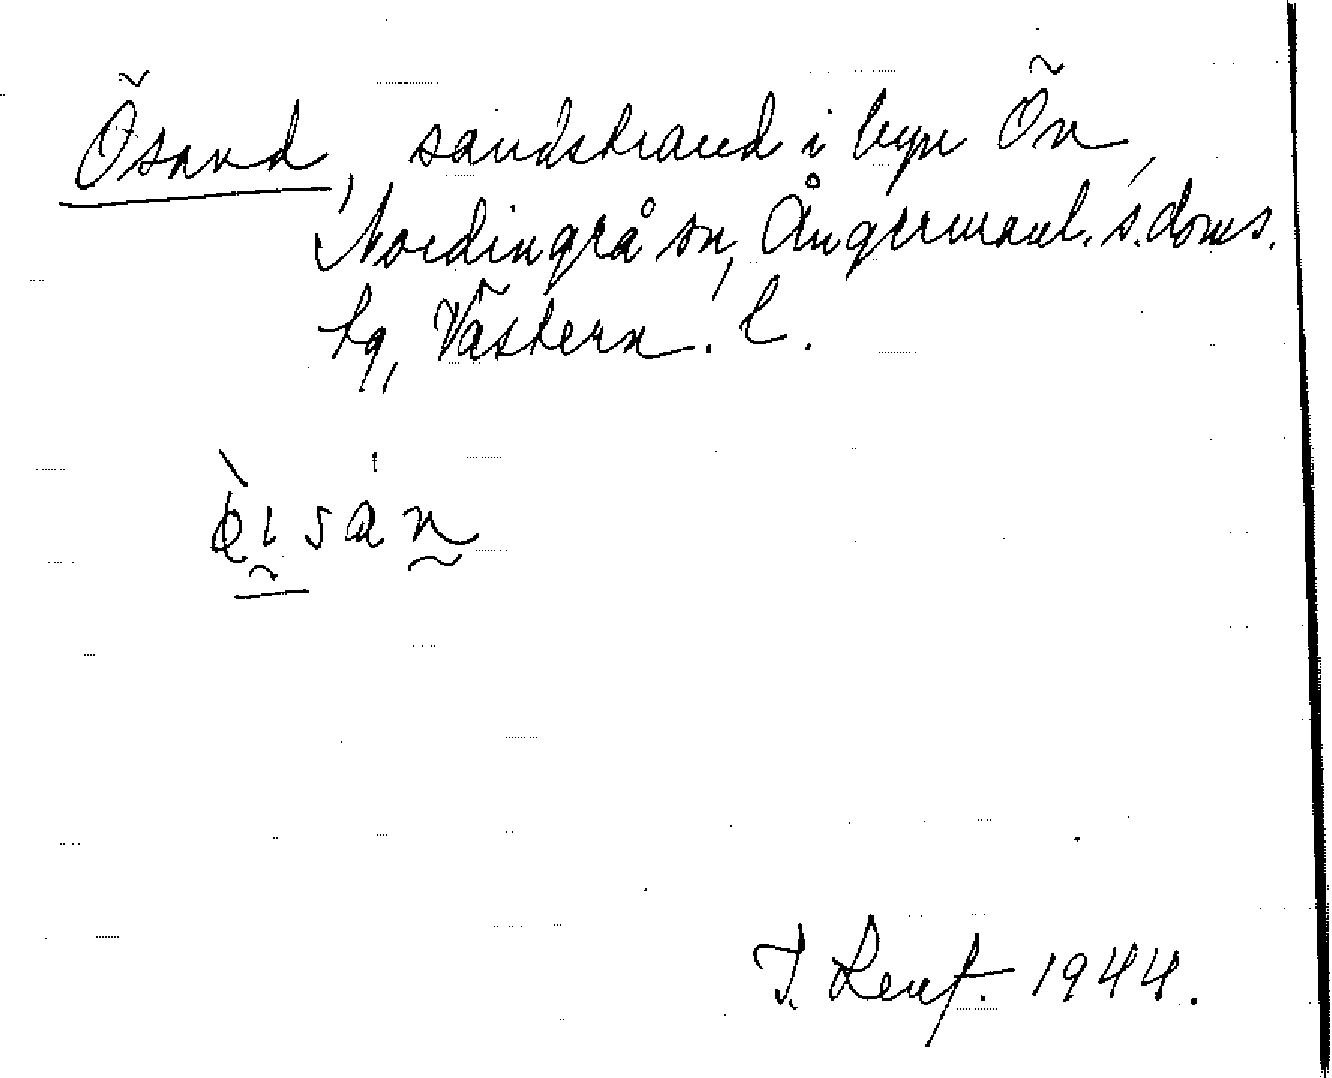 Ösand, sandstrand i byn Ön,
Nordingrå sn, Ångermanl. s. doms.
tg, Västern. l.
T. Lenf. 1944.